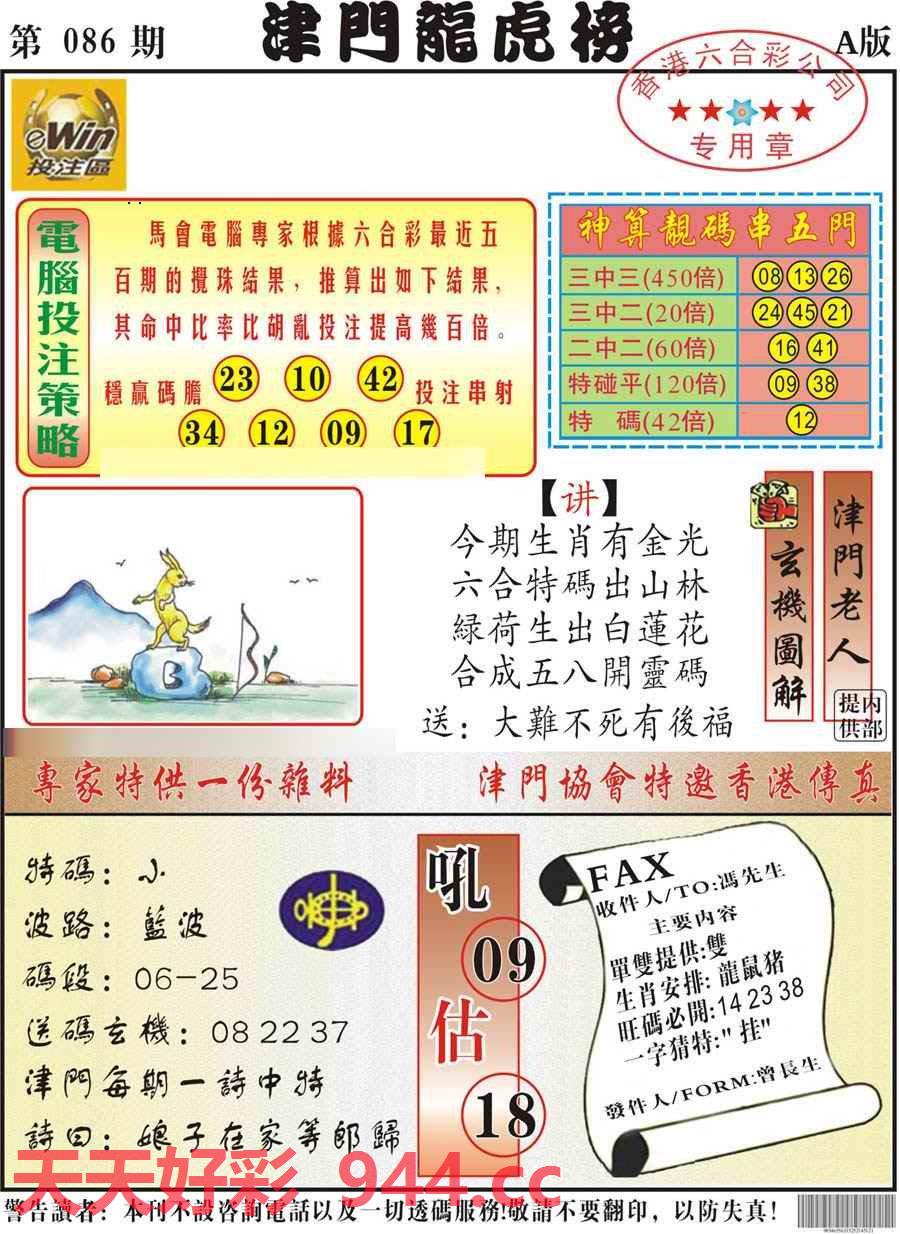 第 086 期
津門龍虎榜
A版
香港六合彩公司
专用章
eWin
投注區
電腦投注策略
馬會電腦專家根據六合彩最近五
百期的攪珠結果，推算出如下結果，
其命中比率比胡亂投注提高幾百倍。
穩贏碼膽 23 10 42 投注串射
34 12 09 17
神算靚碼串五門
三中三(450倍) 08 13 26
三中二(20倍) 24 45 21
二中二(60倍) 16 41
特碰平(120倍) 09 38
特 碼(42倍) 12
【讲】
今期生肖有金光
六合特碼出山林
緑荷生出白蓮花
合成五八開靈碼
送：大難不死有後福
玄機圖解
津門老人
内部提供
專家特供一份雜料
津門協會特邀香港傳真
特碼：小
波路：藍波
碼段：06-25
送碼玄機：08 22 37
津門每期一詩中特
詩曰：娘子在家等郎歸
吼
09
估
18
FAX
收件人/TO:馮先生
主要内容
單雙提供:雙
生肖安排:龍鼠猪
旺碼必開:14 23 38
一字猜特:"挂"
發件人/FORM:曾長生
天天好彩 944.cc
警告讀者：本刊不設咨詢電話以及一切透碼服務!敬請不要翻印，以防失真！